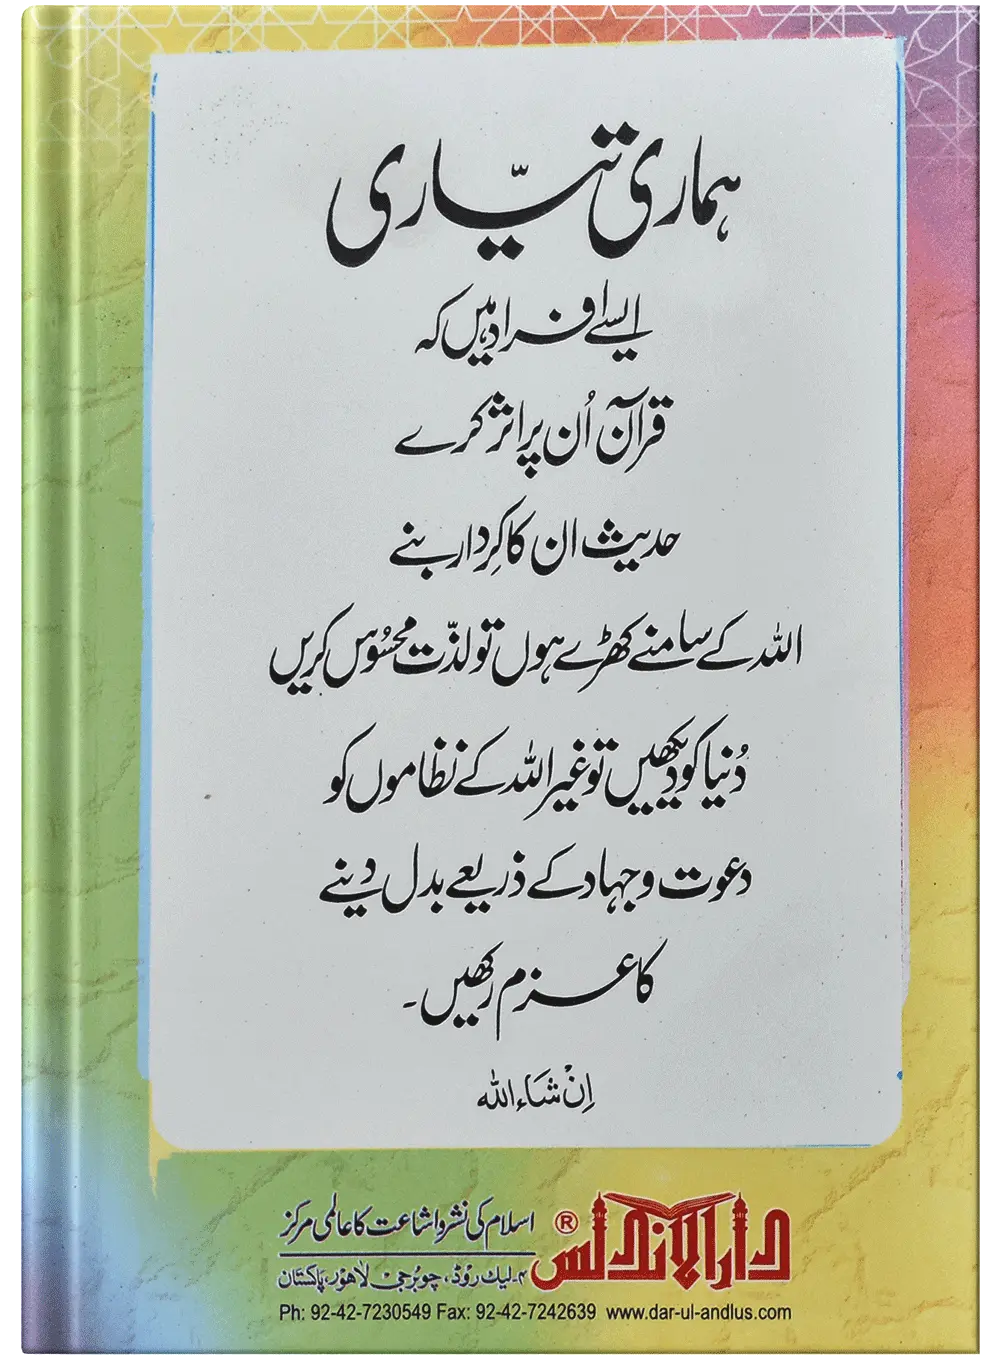 ہماری تیّاری
ایسے افراد ہیں کہ
قرآن اُن پر اثر کرے
حدیث ان کا کِردار بنے
اللہ کے سامنے کھڑے ہوں تو لذّت محسُوس کریں
دُنیا کو دیکھیں تو غیر اللہ کے نظاموں کو
دعوت و جہاد کے ذریعے بدل دینے
کا عزم رکھیں۔
اِنْ شَاء اللہ
دارالاندلس ®
اسلام کی نشر و اشاعت کا عالمی مرکز
۴-لیک روڈ، چوبُرجی لاهور، پاکستان
Ph: 92-42-7230549 Fax: 92-42-7242639 www.dar-ul-andlus.com